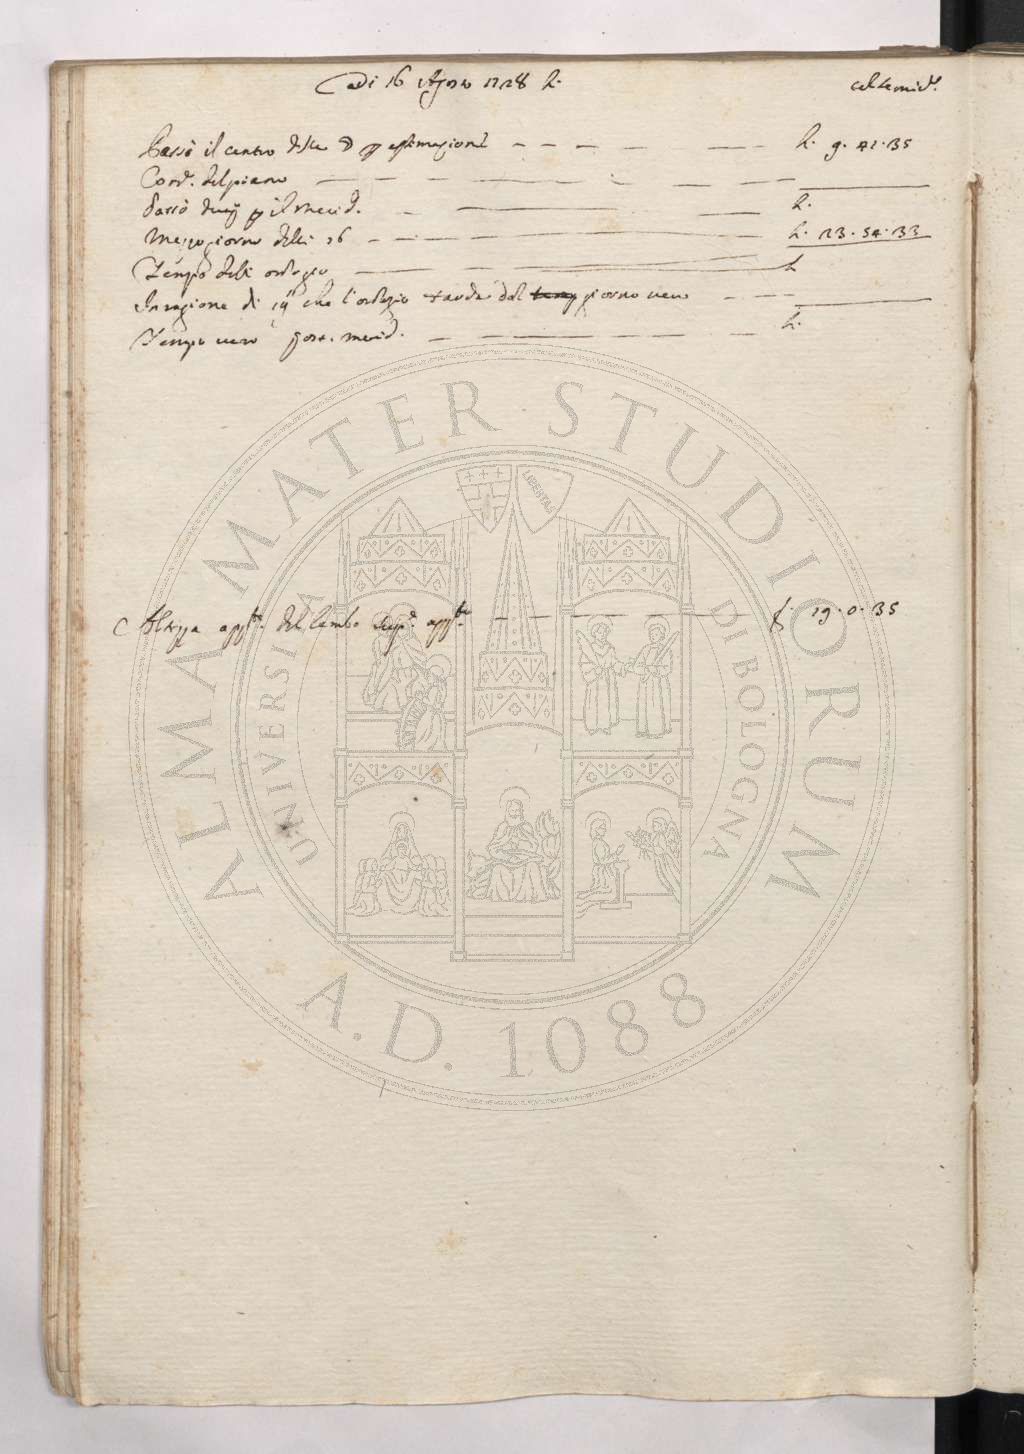 ☾ adi 16 Agosto 1728 h. col semid.
Passò il centro della ☽ p estimazione h. 9. 42. 35
Corr. del piano
Passò dunq p il merid. h.
Mezzogiorno delli 16 h. 23. 54. 33
Tempo dell orologio h
In ragione di 19" che l'orologio tarda dal giorno vero
Tempo vero post. merid. h.
Altezza app. del lembo sup. app. g. 19. 0. 35
ALMA MATER STUDIORUM
UNIVERSITÀ DI BOLOGNA
LIBERTAS
A.D. 1088